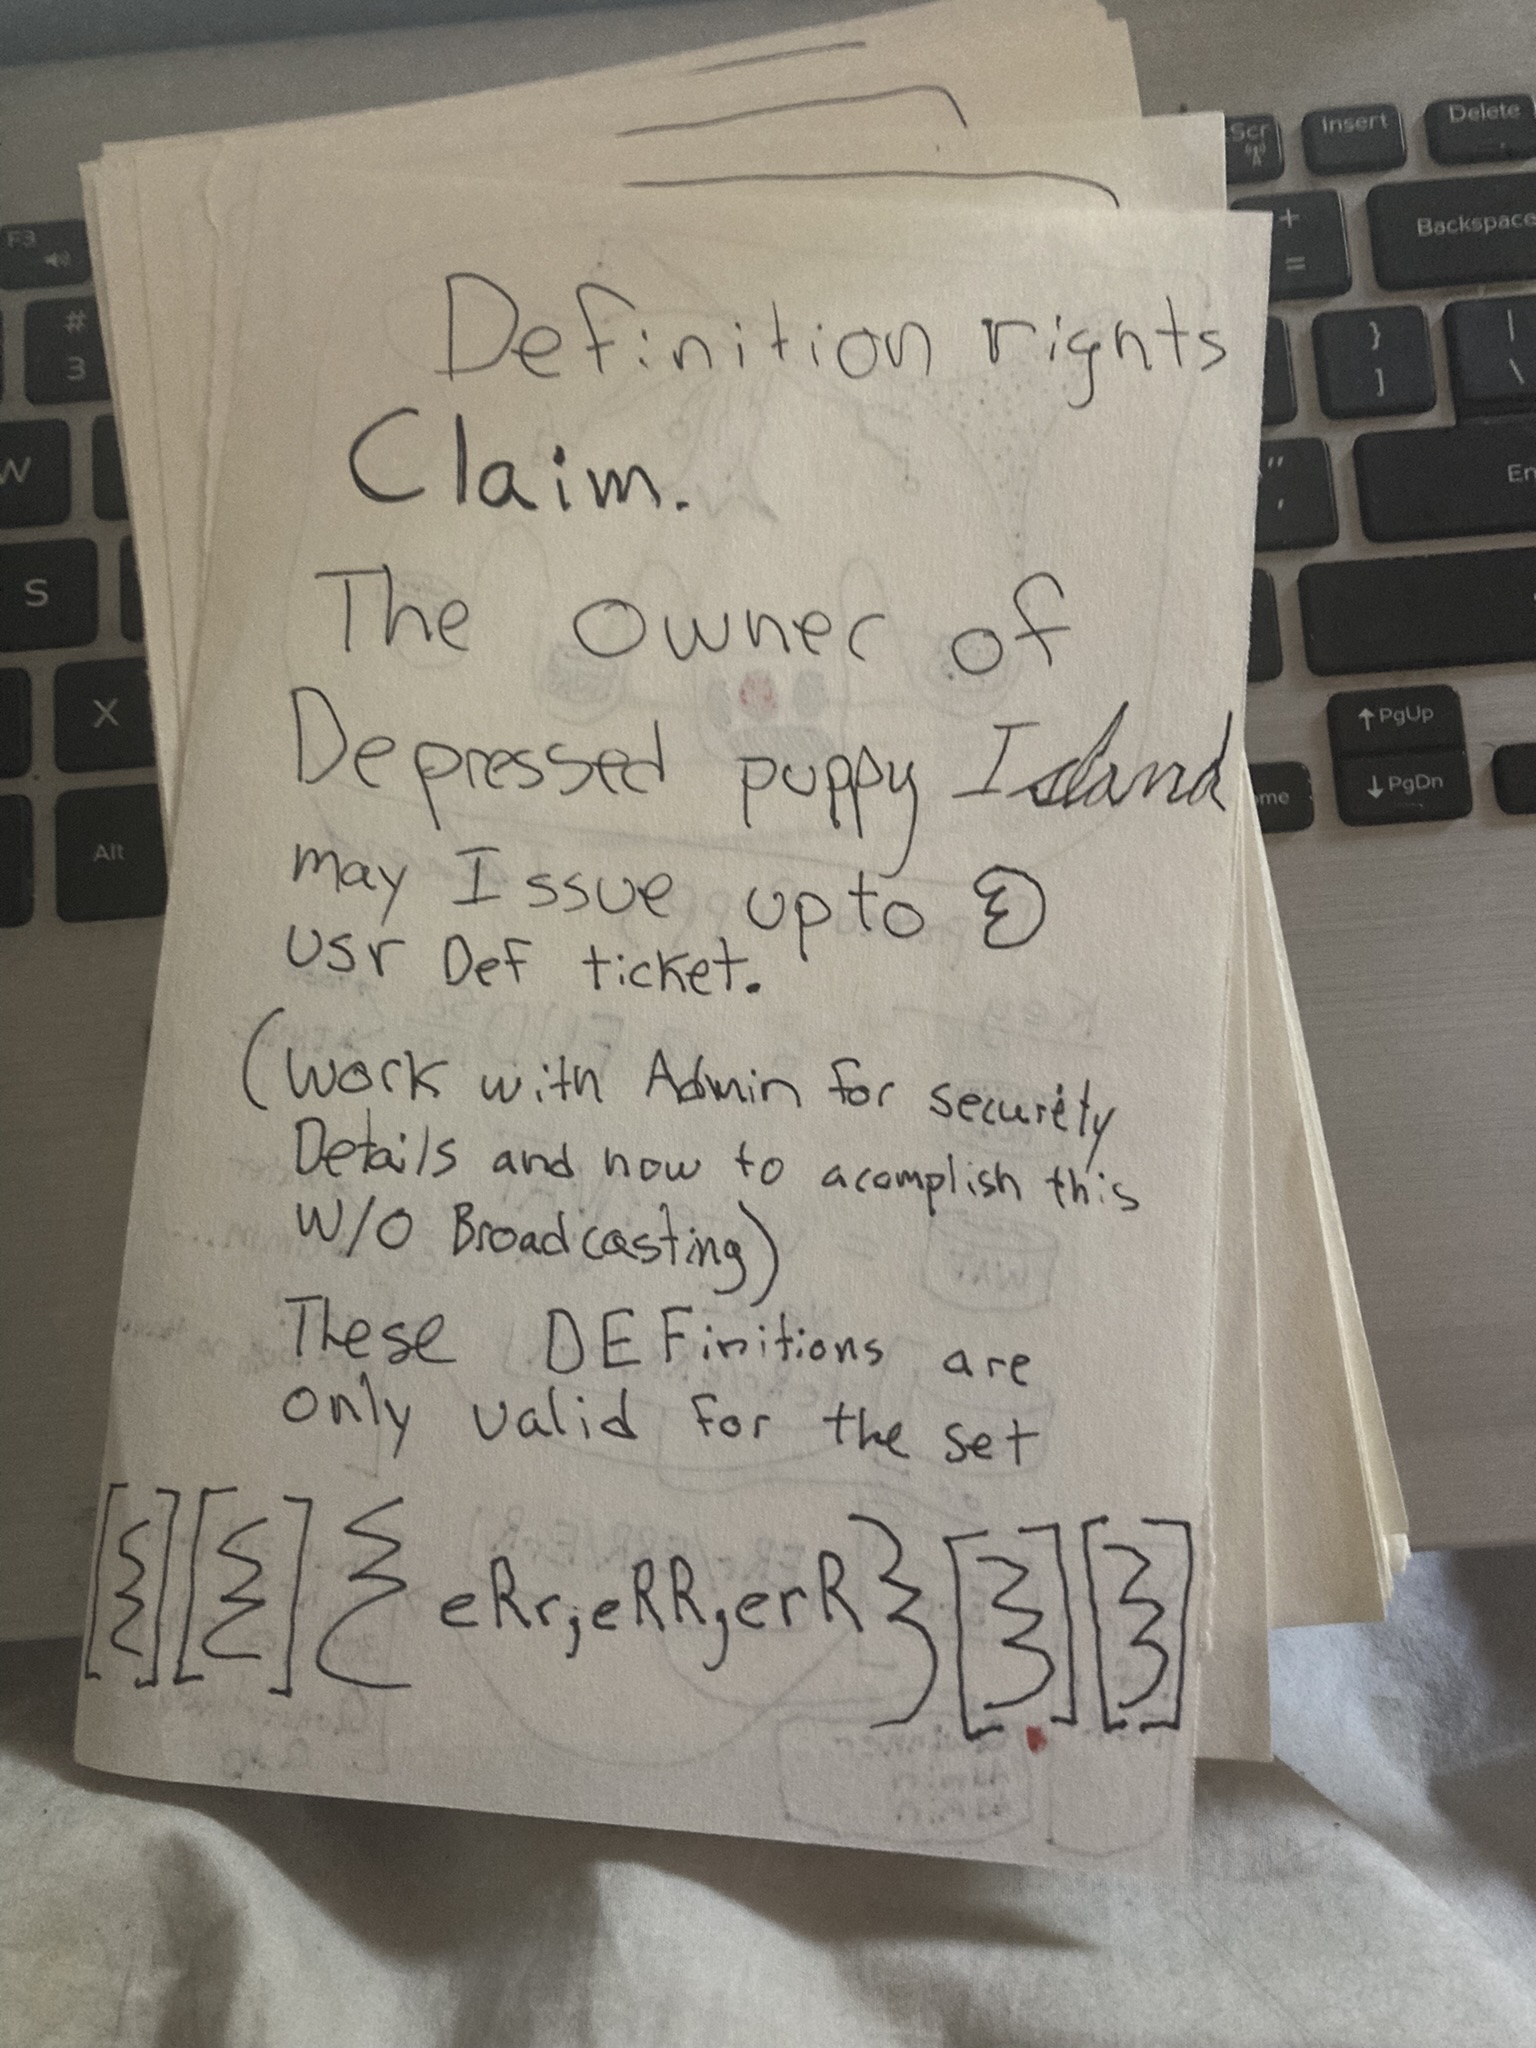 Definition rights
Claim.
The owner of
Depressed puppy Island
may Issue up to
usr Def ticket.
(work with Admin for security
Details and how to acomplish this
W/O Broadcasting)
These DEFinitions are
only valid for the set
[{][{]{eRr;eRR;erR}[}][}]
F3
#
3
W
S
X
Alt
Scr
Insert
Delete
+
=
Backspace
}
]
|
\
"
'
En
↑ PgUp
↓ PgDn
ome